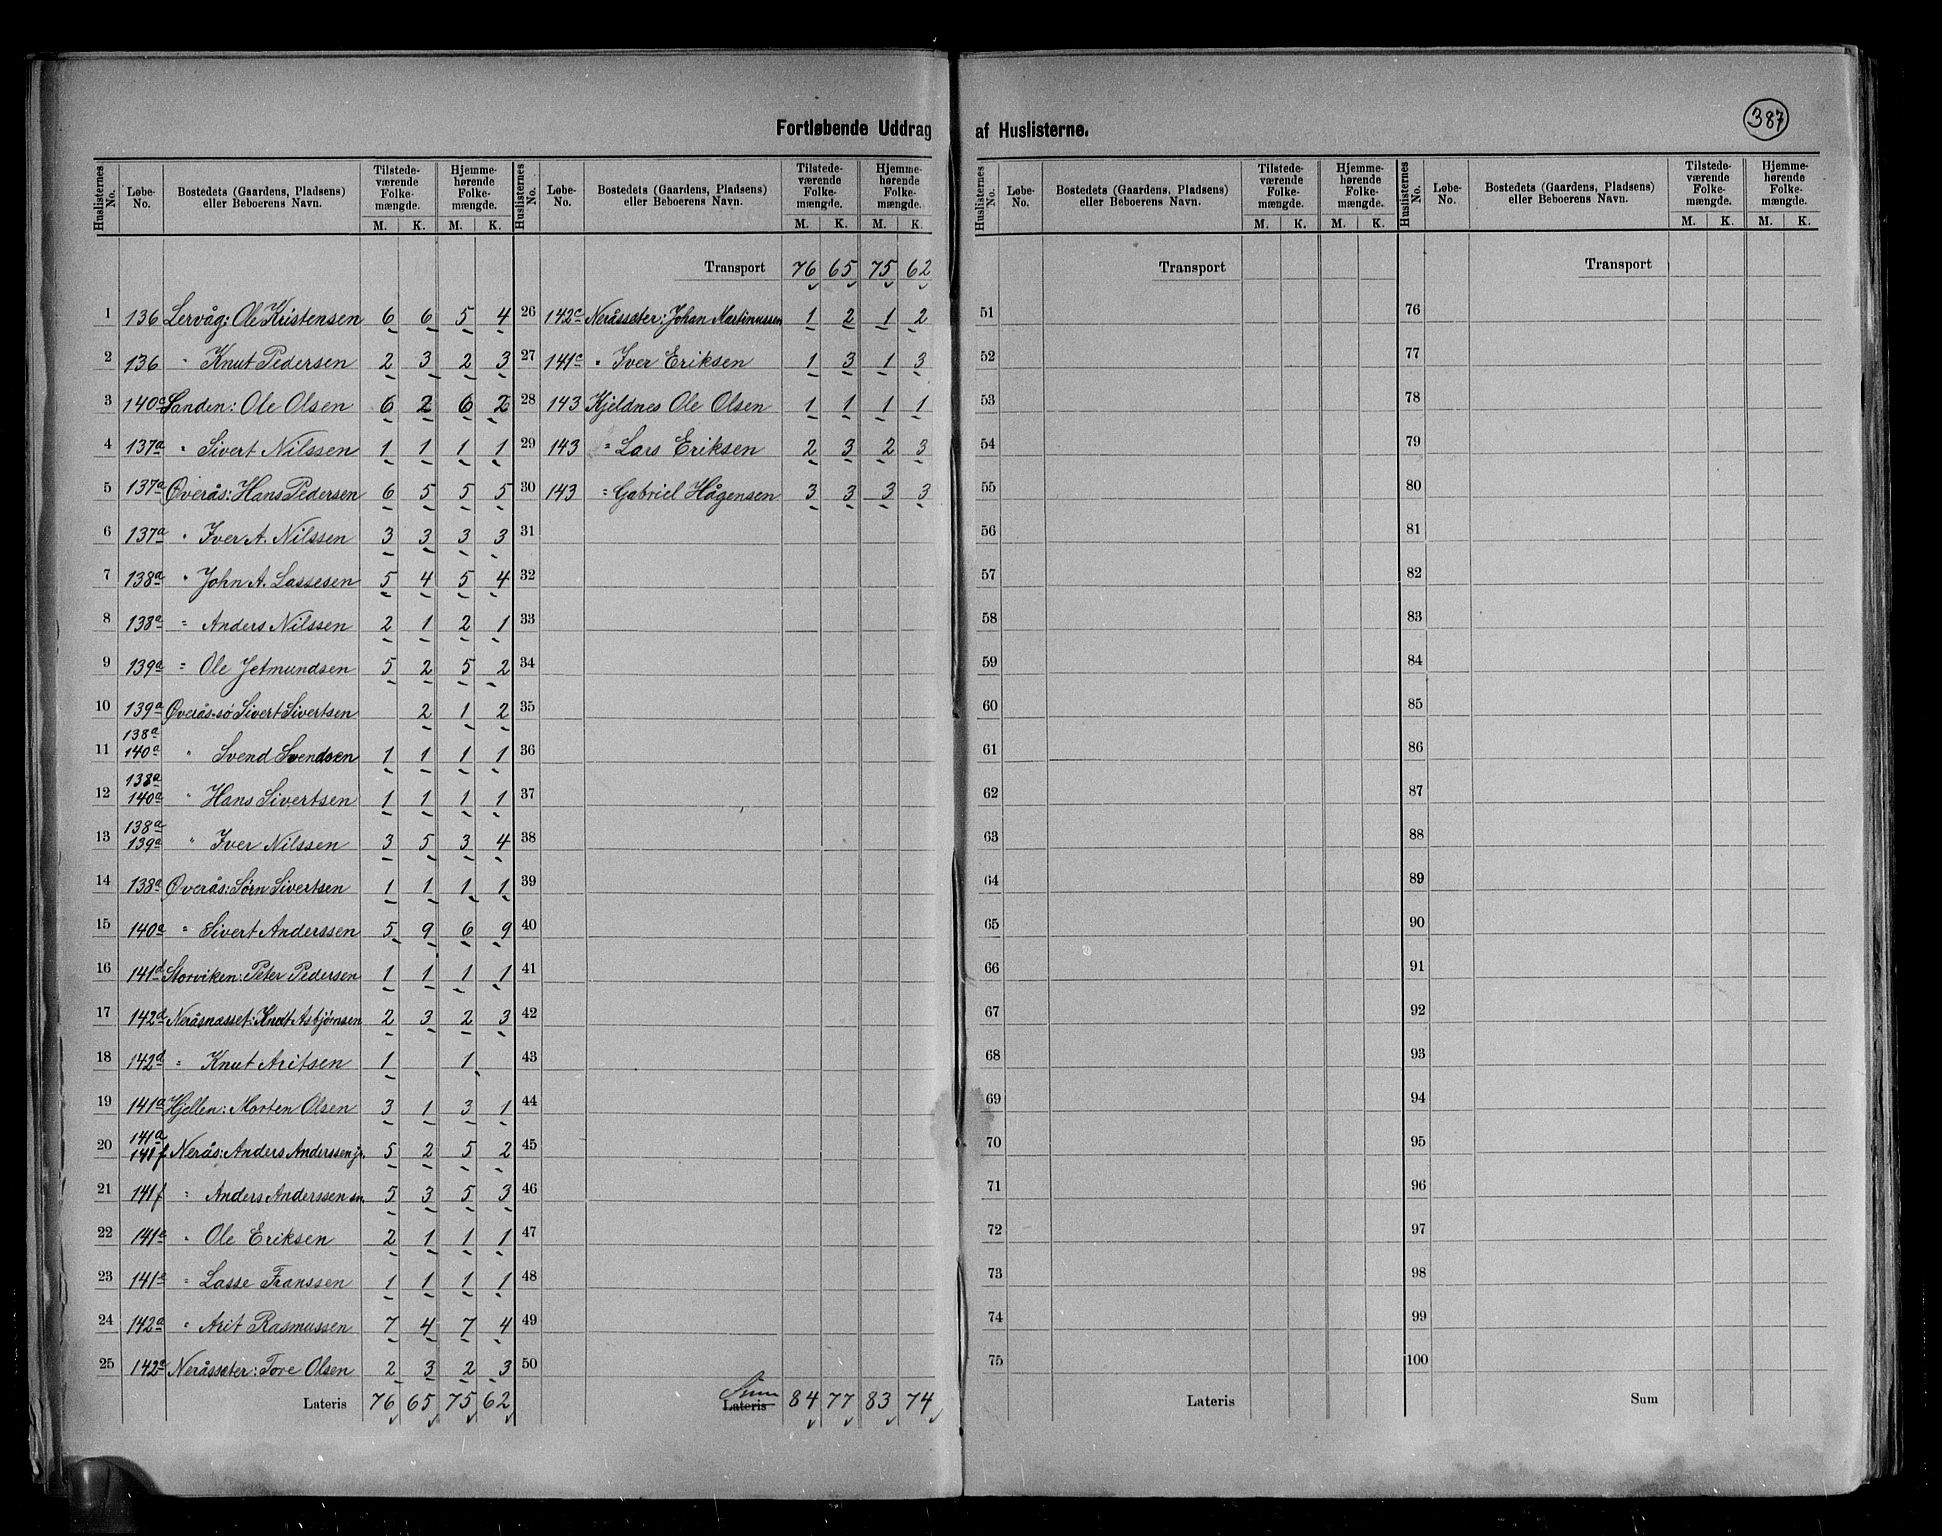 387
Fortløbende Uddrag af Huslisterne.
Huslisternes No. Løbe-No. Bostedets (Gaardens, Pladsens) eller Beboerens Navn. Tilstedeværende Folkemængde. M. K. Hjemmehørende Folkemængde. M. K.
1 136 Lervåg: Ole Kristensen 6 6 5 4
2 136 " Knut Pedersen 2 3 2 3
3 140c Sanden: Ole Olsen 6 2 6 2
4 137a " Sivert Nilssen 1 1 1 1
5 137a Øverås: Hans Pedersen 6 5 5 5
6 137a " Iver A. Nilssen 3 3 3 3
7 138a " John A. Lassesen 5 4 5 4
8 138a " Anders Nilssen 2 1 2 1
9 139a " Ole Jetmundsen 5 2 5 2
10 139a Øverås-sö Sivert Sivertsen 2 1 2
11 138a 140a " Svend Svendsen 1 1 1 1
12 138a 140a " Hans Sivertsen 1 1 1 1
13 138a 139a " Iver Nilssen 3 5 3 4
14 138a Øverås: Sørn Sivertsen 1 1 1 1
15 140a " Sivert Anderssen 5 9 6 9
16 141d Storviken: Peter Pedersen 1 1 1 1
17 142d Neråsnasset: Knut Asbjørnsen 2 3 2 3
18 142d " Knut Aritsen 1 1
19 141a Hjellen: Morten Olsen 3 1 3 1
20 141a 141f Nerås: Anders Anderssen jr. 5 2 5 2
21 141f " Anders Anderssen sn. 5 3 5 3
22 141e " Ole Eriksen 2 1 1 1
23 141e " Lasse Franssen 1 1 1 1
24 142a " Arit Rasmussen 7 4 7 4
25 142a Neråssæter: Tore Olsen 2 3 2 3
Lateris 76 65 75 62
Huslisternes No. Løbe-No. Bostedets (Gaardens, Pladsens) eller Beboerens Navn. Tilstedeværende Folkemængde. M. K. Hjemmehørende Folkemængde. M. K.
Transport 76 65 75 62
26 142c Neråssæter: Johan Martinussen 1 2 1 2
27 141c " Iver Eriksen 1 3 1 3
28 143 Kjeldnes Ole Olsen 1 1 1 1
29 143 " Lars Eriksen 2 3 2 3
30 143 " Gabriel Hågensen 3 3 3 3
31
32
33
34
35
36
37
38
39
40
41
42
43
44
45
46
47
48
49
50
Sum
Lateris 84 77 83 74
Huslisternes No. Løbe-No. Bostedets (Gaardens, Pladsens) eller Beboerens Navn. Tilstedeværende Folkemængde. M. K. Hjemmehørende Folkemængde. M. K.
Transport
51
52
53
54
55
56
57
58
59
60
61
62
63
64
65
66
67
68
69
70
71
72
73
74
75
Lateris
Huslisternes No. Løbe-No. Bostedets (Gaardens, Pladsens) eller Beboerens Navn. Tilstedeværende Folkemængde. M. K. Hjemmehørende Folkemængde. M. K.
Transport
76
77
78
79
80
81
82
83
84
85
86
87
88
89
90
91
92
93
94
95
96
97
98
99
100
Sum